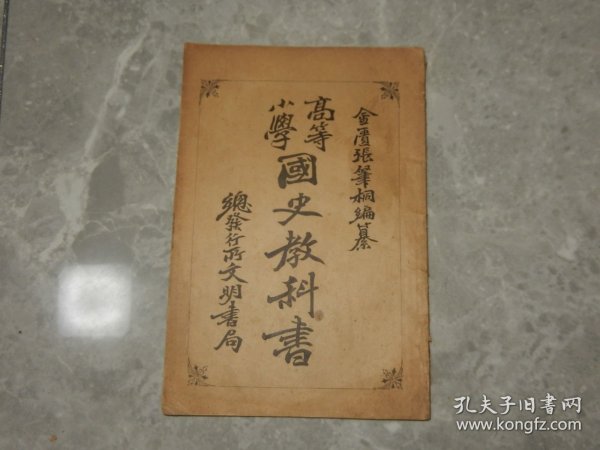 金匱張肇桐編纂
高等
小學
國史教科書
總發行所文明書局
孔夫子旧书网
www.kongfz.com